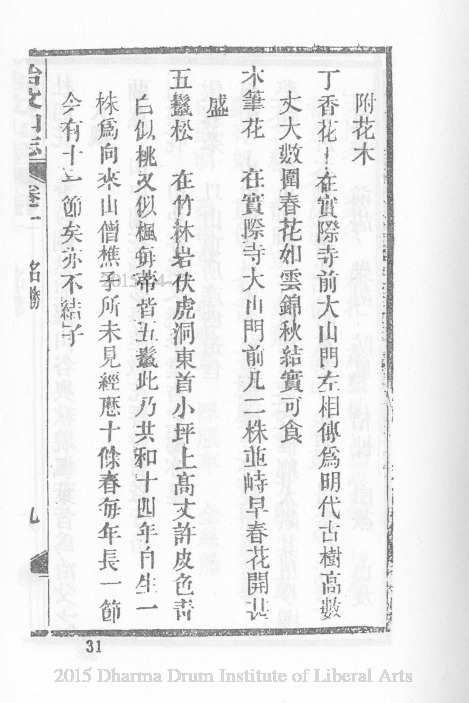 附花木
丁香花 在實際寺前大山門左相傳爲明代古樹高數
丈大數圍春花如雲錦秋結實可食
木筆花 在實際寺大山門前凡二株並峙早春花開甚
盛
五鬛松 在竹林岩伏虎洞東首小坪上高丈許皮色青
白似桃又似楓每蒂皆五鬛此乃共和十四年自生一
株爲向來山僧樵子所未見經歷十餘春每年長一節
今有十五節矣亦不結子
冶父山志 卷一 名勝 九
31
2015 Dharma Drum Institute of Liberal Arts